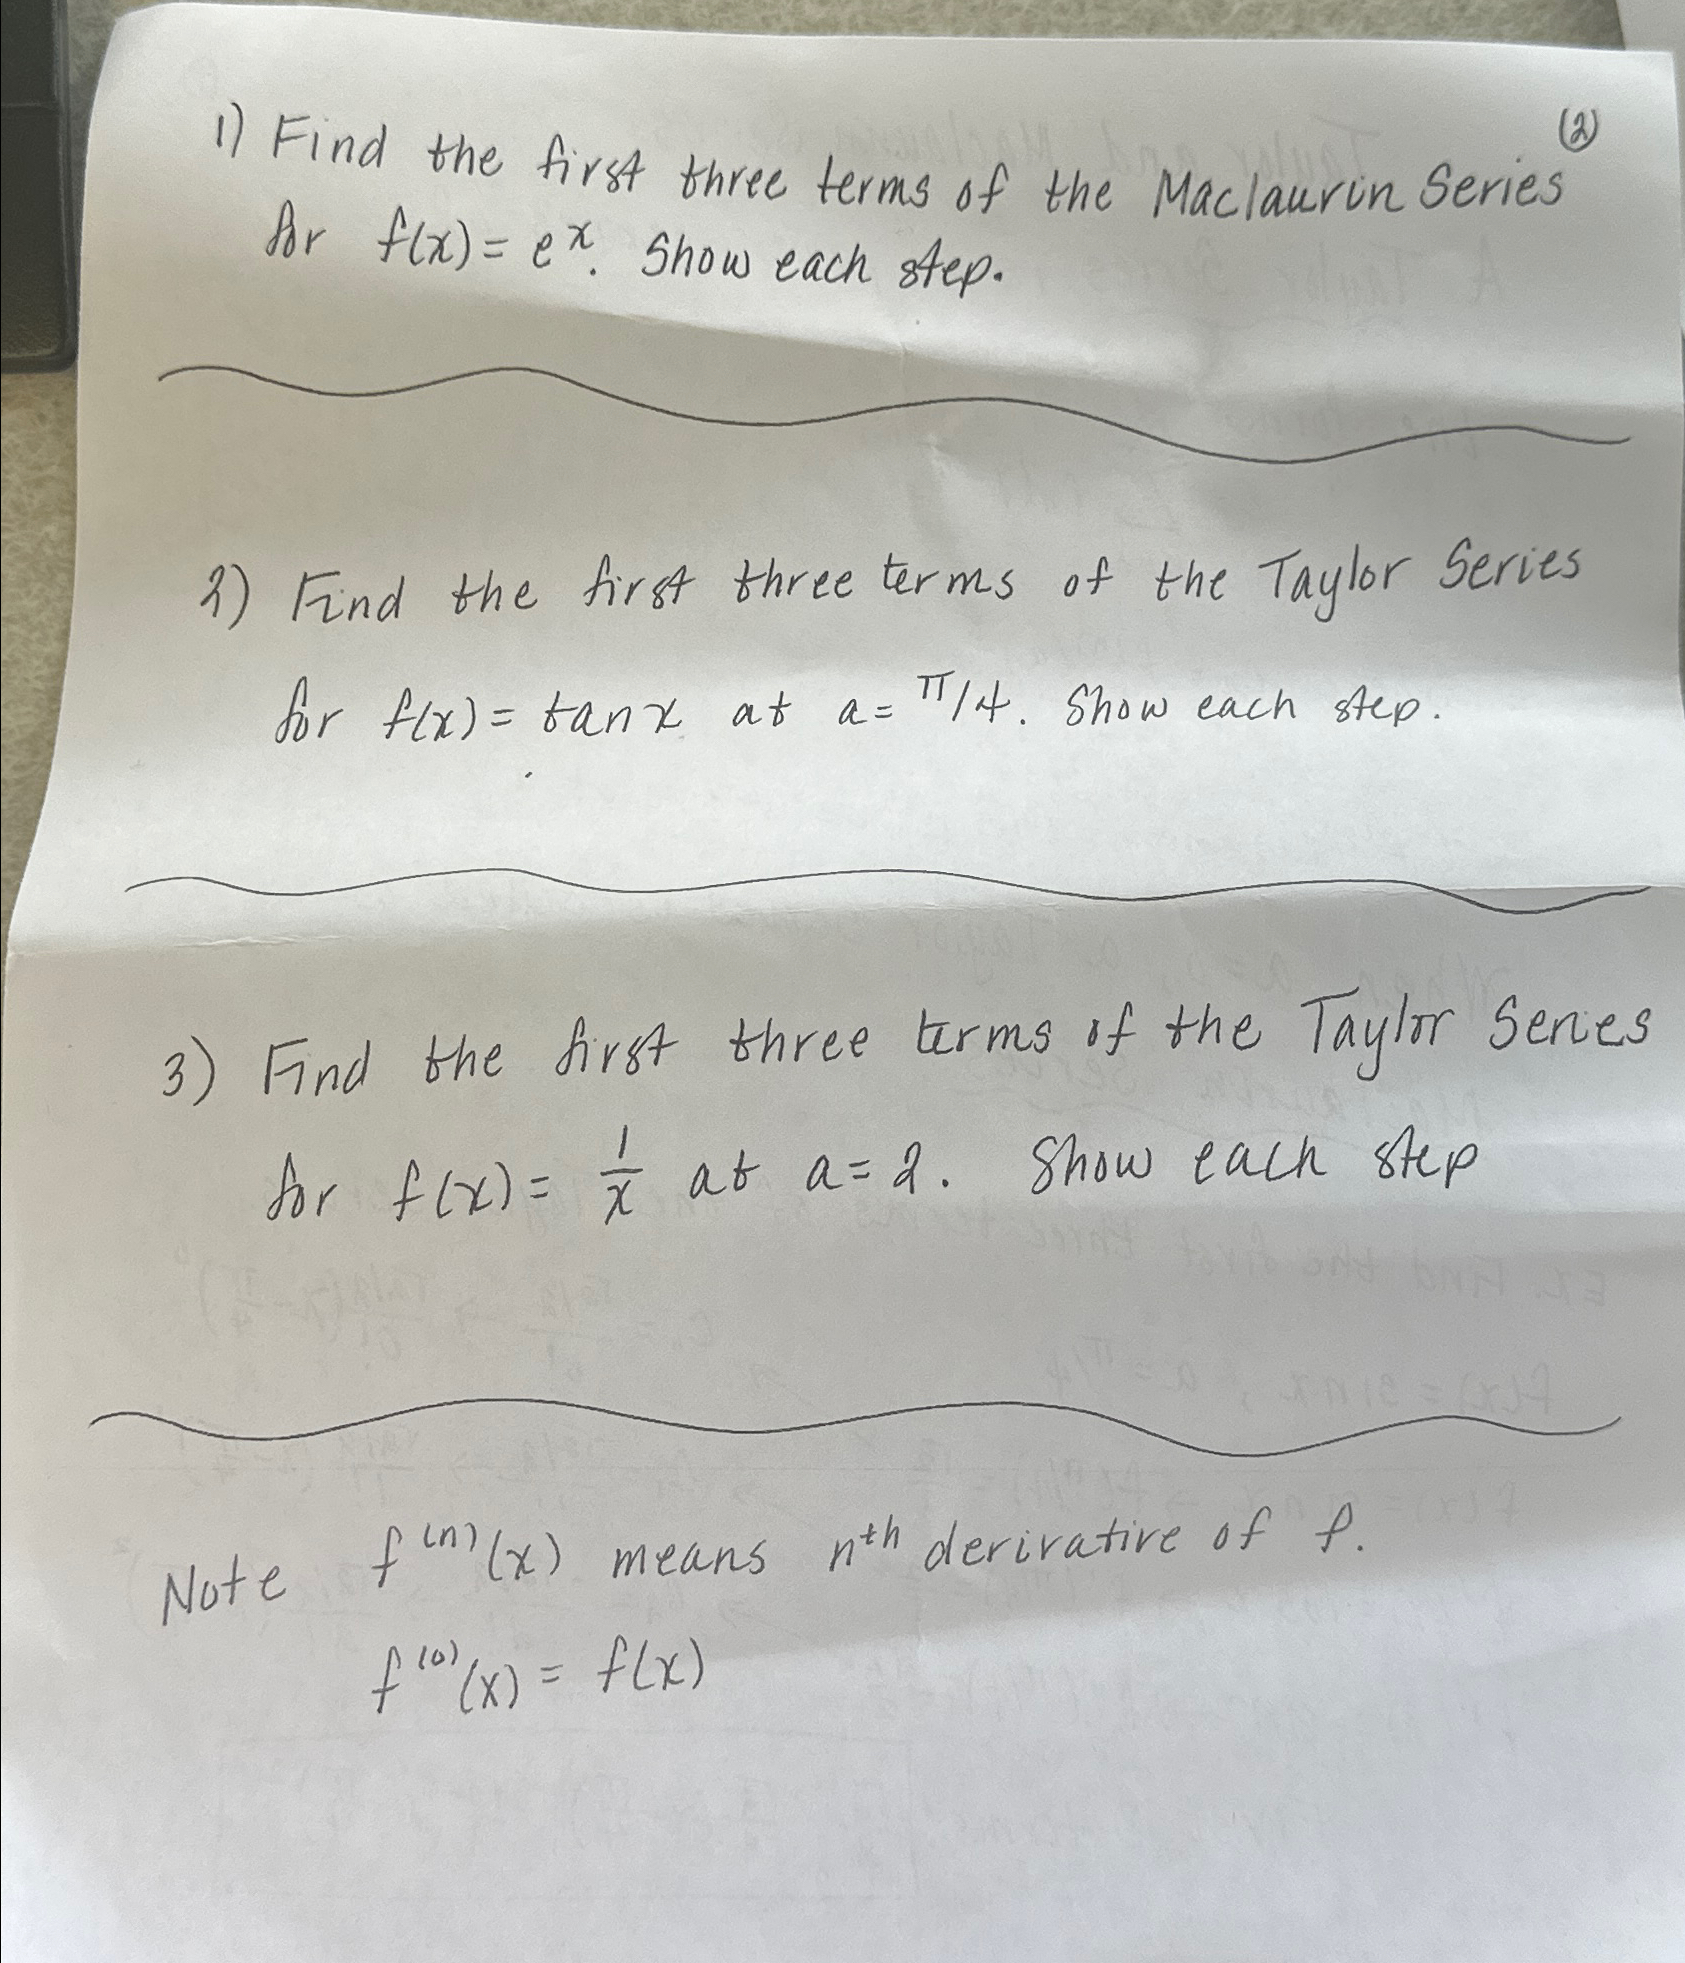 (2)
1) Find the first three terms of the Maclaurin Series
for f(x) = e^x. Show each step.
2) Find the first three terms of the Taylor Series
for f(x) = tan x at a = π/4. Show each step.
3) Find the first three terms of the Taylor Series
for f(x) = 1/x at a = 2. Show each step
Note f^(n)(x) means n^th derivative of f.
f^(0)(x) = f(x)